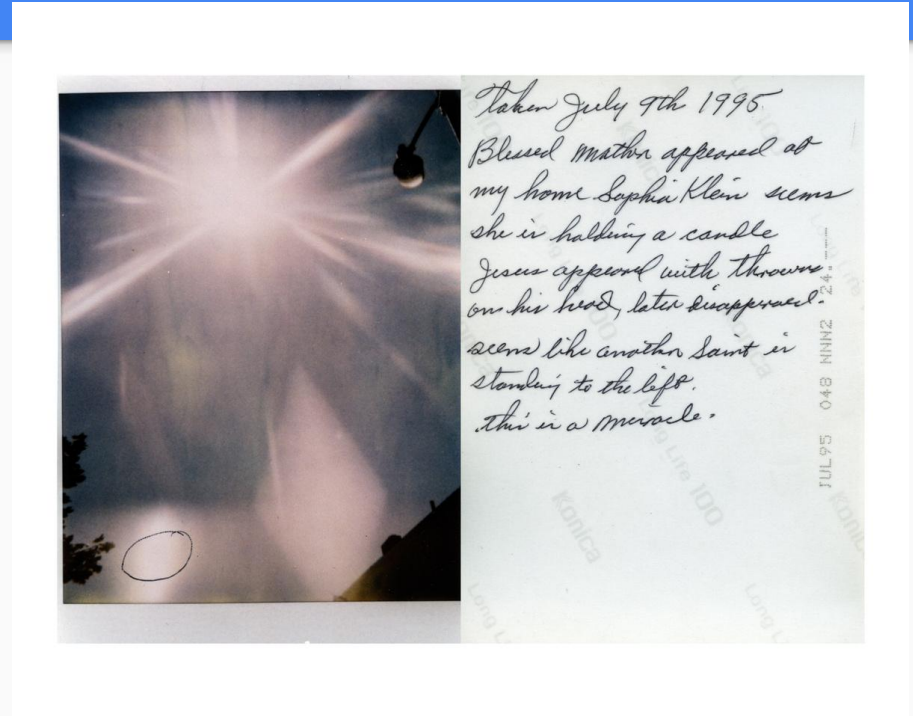 Taken July 9th 1995
Blessed Mother appeared at
my home Sophia Klein seems
she is holding a candle
Jesus appeared with throwns
on his head, later disappeared.
seems like another Saint is
standing to the left.
this is a miracle.
JUL95 048 NNN2 24.---
Konica
Long Life 100
Konica
Long Life 100
Konica